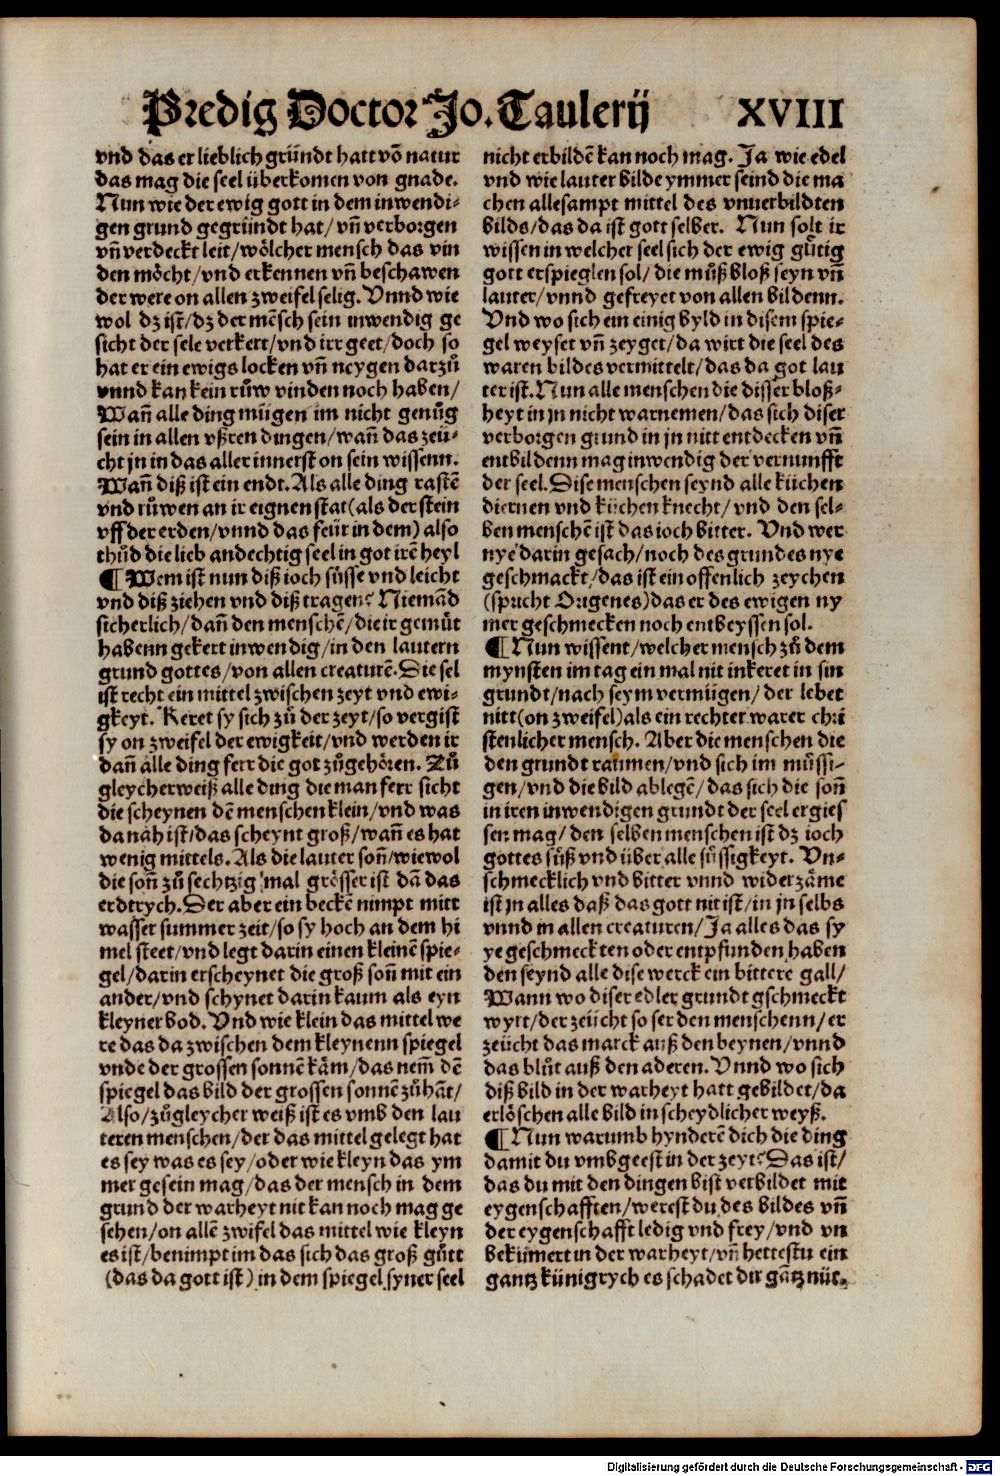 Predig Doctor Jo. Taulerij XVIII
vnd das er lieblich gründt hatt võ natur
das mag die seel überkomen von gnade.
Nun wie der ewig gott in dem inwendi-
gen grund gegründt hat/ vñ verborgen
vñ verdeckt leit/ wölcher mensch das vin
den möcht/ vnd erkennen vñ beschawen
der were on allen zweifel selig. Vnnd wie
wol dz ist/ dz der mẽsch sein inwendig ge
sicht der sele verkert/ vnd irr geet/ doch so
hat er ein ewigs locken vñ neygen darzů
vnnd kan kein růw vinden noch haben/
Wañ alle ding mügen im nicht genůg
sein in allen vßren dingen/ wañ das zeü-
cht jn in das aller innerst on sein wissenn.
Wañ diß ist ein endt. Als alle ding rastẽ
vnd růwen an ir eignen stat (als der stein
vff der erden/ vnnd das feür in dem) also
thůd die lieb andechtig seel in got irẽ heyl
¶ Wem ist nun diß ioch süsse vnd leicht
vnd diß ziehen vnd diß tragen? Niemãd
sicherlich/ dañ den menschẽ/ die ir gemüt
habenn gekert inwendig/ in den lautern
grund gottes/ von allen creaturẽ. Die sel
ist recht ein mittel zwischen zeyt vnd ewi-
gkeyt. Keret sy sich zů der zeyt/ so vergist
sy on zweifel der ewigkeit/ vnd werden ir
dañ alle ding ferr die got zůgehören. Zů
gleycherweiß alle ding die man ferr sicht
die scheynen dẽ menschen klein/ vnd was
da näh ist/ das scheynt groß/ wañ es hat
wenig mittels. Als die lauter soñ/ wiewol
die soñ zů sechtzig mal grösser ist dã das
erdtrych. Der aber ein beckẽ nimpt mitt
wasser summer zeit/ so sy hoch an dem hi
mel steet/ vnd legt darin einen kleinẽ spie-
gel/ darin erscheynet die groß soñ mit ein
ander/ vnd schynet darin kaum als eyn
kleyner bod. Vnd wie klein das mittel we
re das da zwischen dem kleynenn spiegel
vnde der grossen sonnẽ kãm/ das nem̃ dẽ
spiegel das bild der grossen sonnẽ zůhãt/
Also/ zůgleycher weiß ist es vmb den lau
teren menschen/ der das mittel gelegt hat
es sey was es sey/ oder wie kleyn das ym
mer gesein mag/ das der mensch in dem
grund der warheyt nit kan noch mag ge
sehen/ on allẽ zwifel das mittel wie kleyn
es ist/ benimpt im das sich das groß gůtt
(das da gott ist) in dem spiegel syner seel
nicht erbildẽ kan noch mag. Ja wie edel
vnd wie lauter bilde ymmer seind die ma
chen allesampt mittel des vnuerbildten
bilds/ das da ist gott selber. Nun solt ir
wissen in welcher seel sich der ewig gůtig
gott erspieglen sol/ die můß bloß seyn vñ
lauter/ vnnd gefreyet von allen bildenn.
Vnd wo sich ein einig byld in disem spie-
gel weyset vñ zeyget/ da wirt die seel des
waren bildes vermittelt/ das da got lau
ter ist. Nun alle menschen die disser bloß-
heyt in jn nicht warnemen/ das sich diser
verborgen grund in jn nitt entdecken vñ
entbildenn mag inwendig der vernunfft
der seel. Dise menschen seynd alle küchen
diernen vnd küchen knecht/ vnd den sel-
ben menschẽ ist das ioch bitter. Vnd wer
nye darin gesach/ noch des grundes nye
geschmackt/ das ist ein offenlich zeychen
(spricht Origenes) das er des ewigen ny
mer geschmecken noch entbeyssen sol.
¶ Nun wissent/ welcher mensch zů dem
mynsten im tag ein mal nit inkeret in sin
grundt/ nach seym vermügen/ der lebet
nitt (on zweifel) als ein rechter warer chri
stenlicher mensch. Aber die menschen die
den grundt raumen/ vnd sich im müssi-
gen/ vnd die bild ablegẽ/ das sich die soñ
in iren inwendigen grundt der seel ergies
sen mag/ den selben menschen ist dz ioch
gottes süß vnd über alle süssigkeyt. Vn-
schmecklich vnd bitter vnnd widerzäme
ist jn alles daß das gott nit ist/ in jn selbs
vnnd in allen creaturen/ Ja alles das sy
ye geschmeckten oder entpfunden haben
den seynd alle dise werck ein bittere gall/
Wann wo diser edler grundt gschmeckt
wyrt/ der zeücht so ser den menschenn/ er
zeücht das marck auß den beynen/ vnnd
das blůt auß den aderen. Vnnd wo sich
diß bild in der warheyt hatt gebildet/ da
erlöschen alle bild in scheydlicher weyß.
¶ Nun warumb hynderẽ dich die ding
damit du vmbgeest in der zeyt? Das ist/
das du mit den dingen bist verbildet mit
eygenschafften/ werest du des bildes vñ
der eygenschafft ledig vnd frey/ vnd vn
bekümert in der warheyt/ vñ hettestu ein
gantz künigrych es schadet dir gãtz nüt.
Digitalisierung gefördert durch die Deutsche Forschungsgemeinschaft - DFG